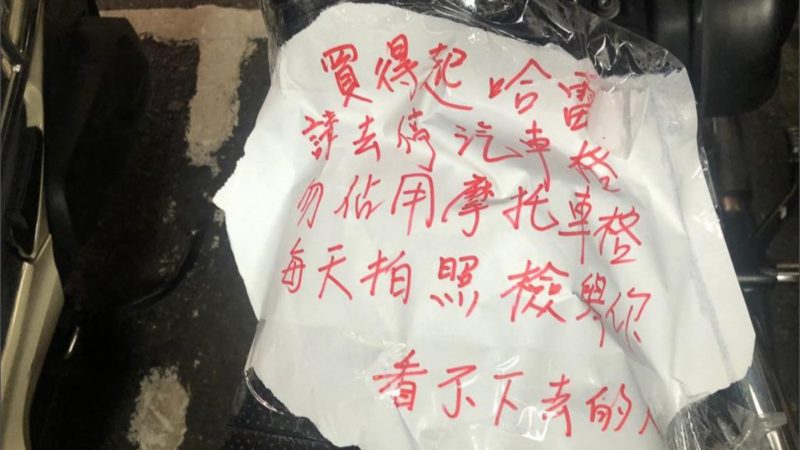 買得起哈雷
請去停汽車格
勿佔用摩托車格
每天拍照檢與你
看不下去的人